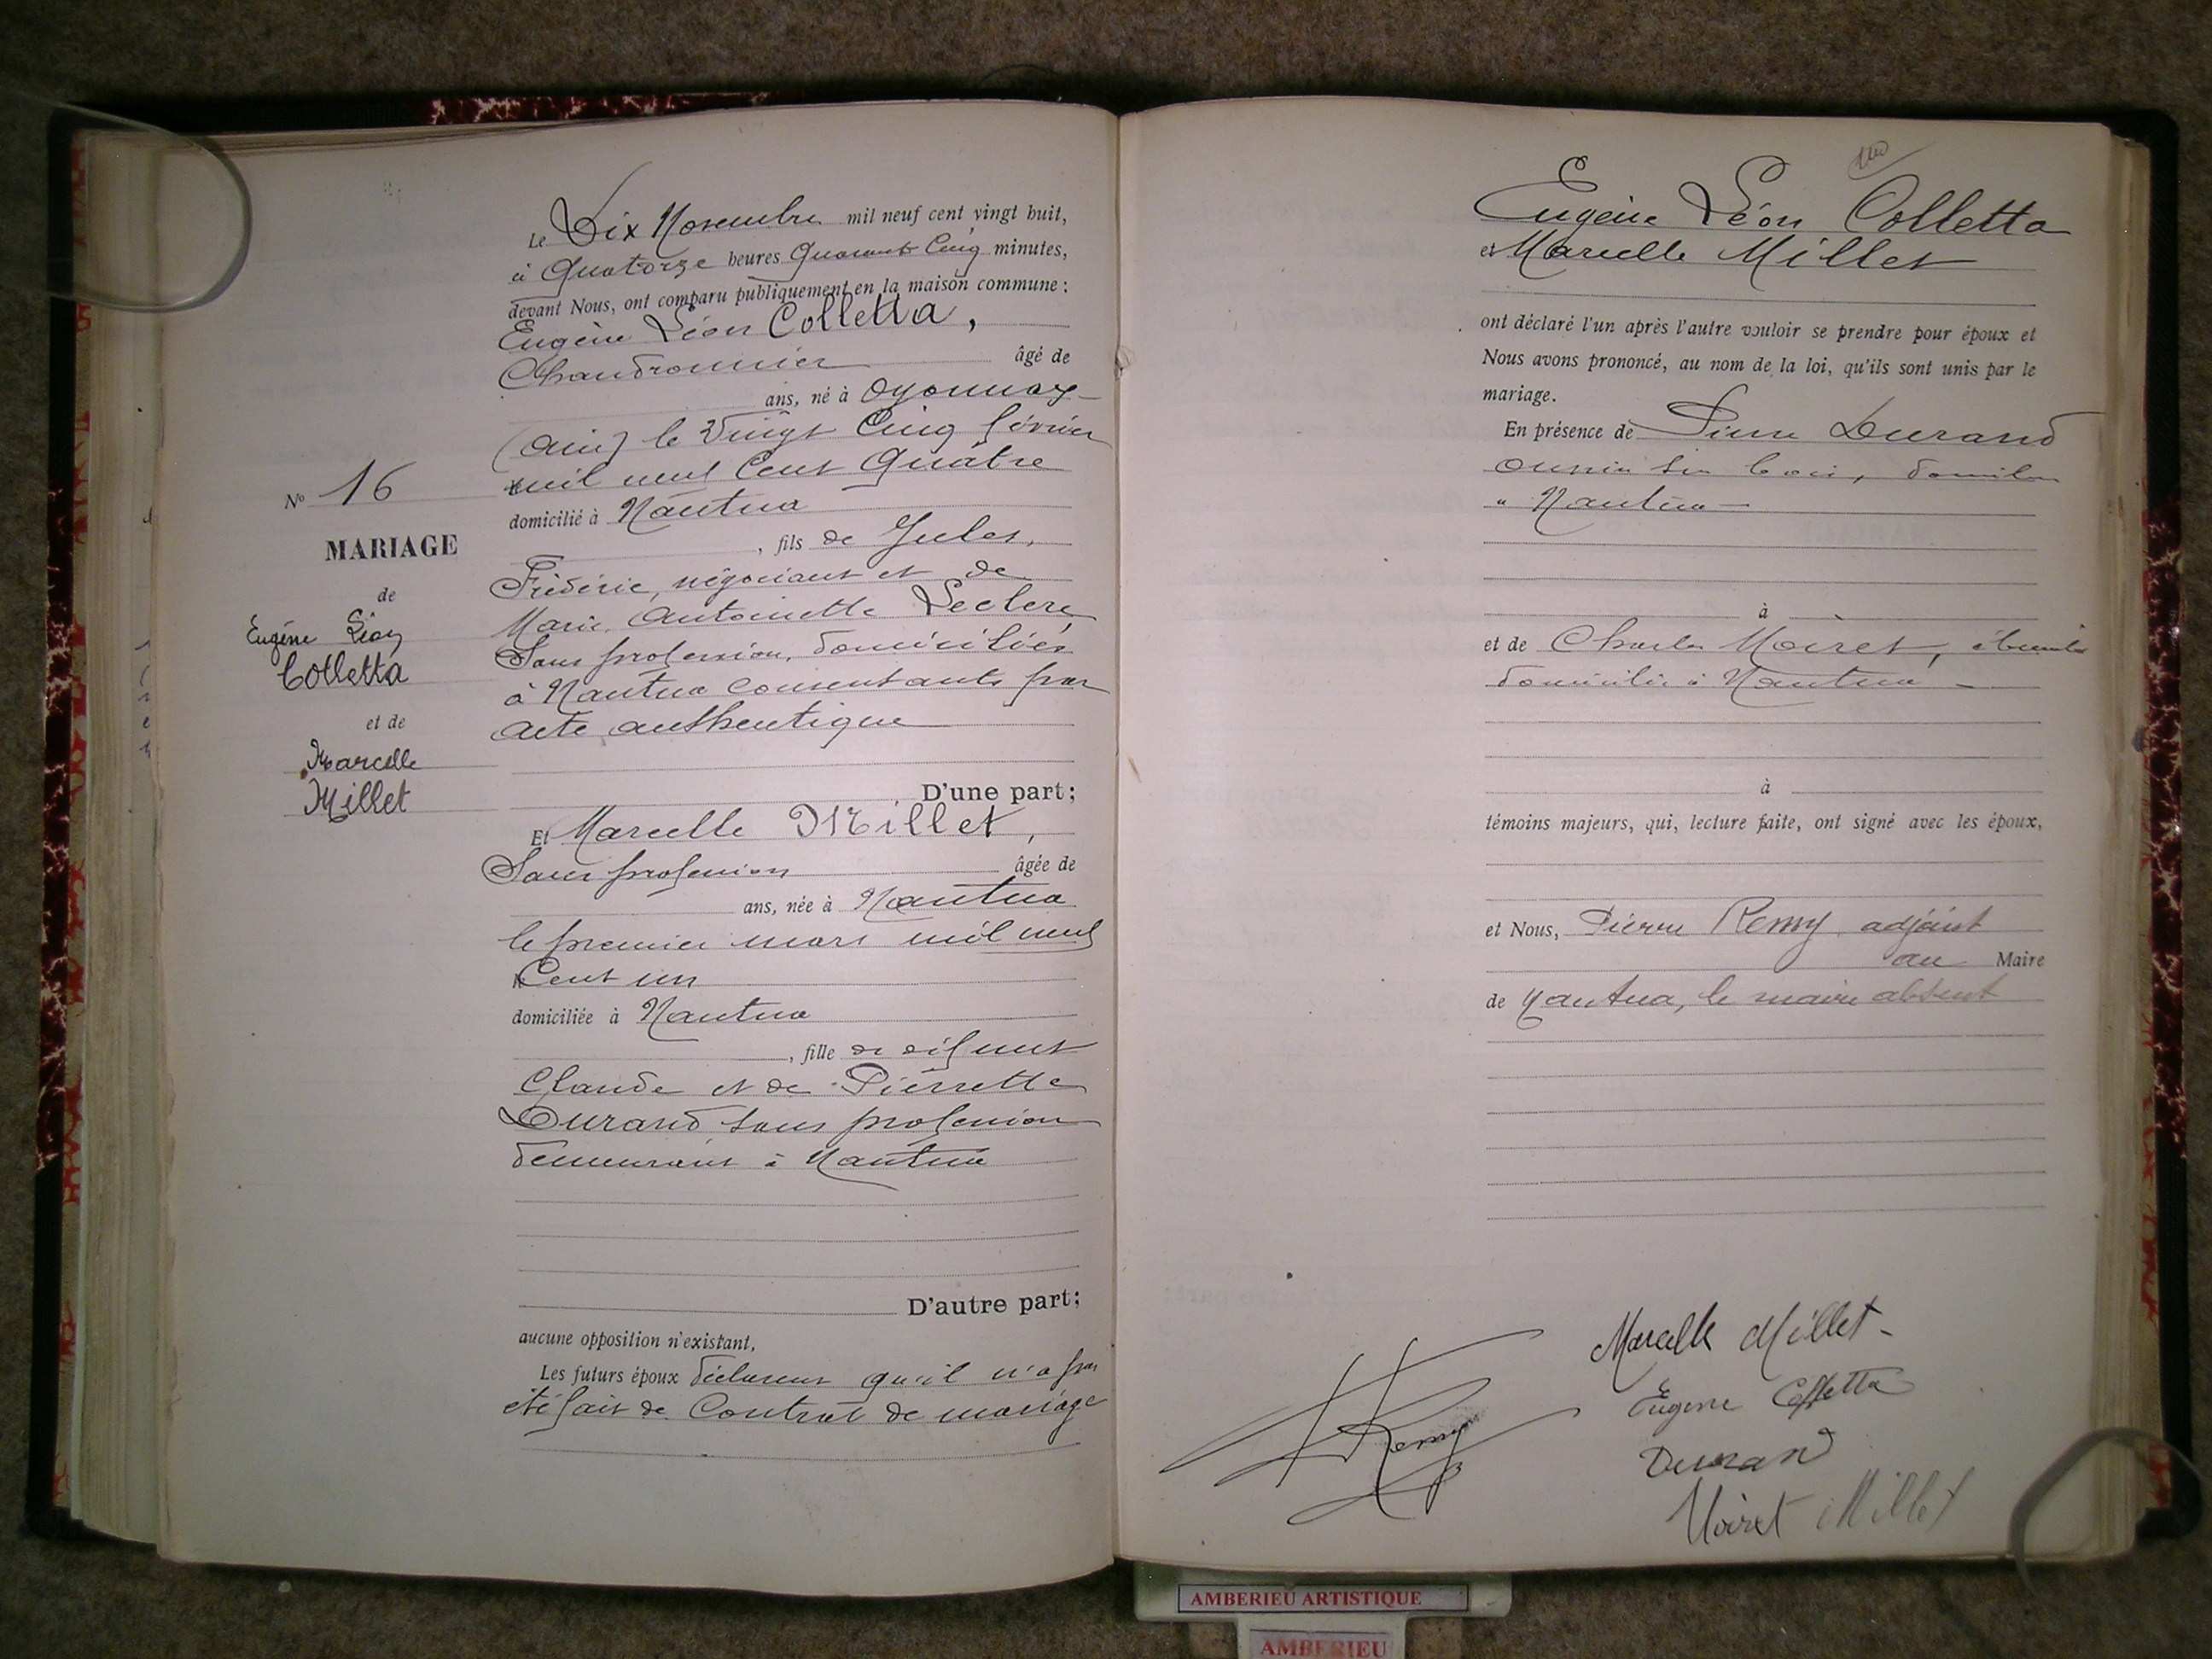 Le Dix Novembre mil neuf cent vingt huit,
à Quatorze heures Quarante Cinq minutes,
devant Nous, ont comparu publiquement en la maison commune :
Eugène Léon Colletta,
Chaudronnier âgé de
ans, né à Oyonnax
(Ain) le Vingt Cinq février
mil neuf Cent Quatre
domicilié à Nantua
, fils de Jules,
Frédéric, négociant et de
Marie Antoinette Leclerc,
Sans profession, domiciliés
à Nantua Consentants par
acte authentique
D'une part;
Et Marcelle Millet,
Sans profession âgée de
ans, née à Nantua
le premier mars mil neuf
Cent un
domiciliée à Nantua
, fille de défunt
Claude et de Pierrette
Durand sans profession
demeurant à Nantua
D'autre part;
aucune opposition n'existant,
Les futurs époux déclarent qu'il n'a pas
été fait de Contrat de mariage
No 16
MARIAGE
de
Eugène Léon
Colletta
et de
Marcelle
Millet
Eugène Léon Colletta
et Marcelle Millet
ont déclaré l'un après l'autre vouloir se prendre pour époux et
Nous avons prononcé, au nom de la loi, qu'ils sont unis par le
mariage.
En présence de Pierre Durand
domicilié
à Nantua
à
et de Charles Moiret, ébéniste
domicilié à Nantua
à
témoins majeurs, qui, lecture faite, ont signé avec les époux,
et Nous, Pierre Remy adjoint
au Maire
de Nantua, le maire absent
Marcelle Millet
Eugène Colletta
Remy
Durand
Moiret Millet
AMBERIEU ARTISTIQUE
AMBERIEU